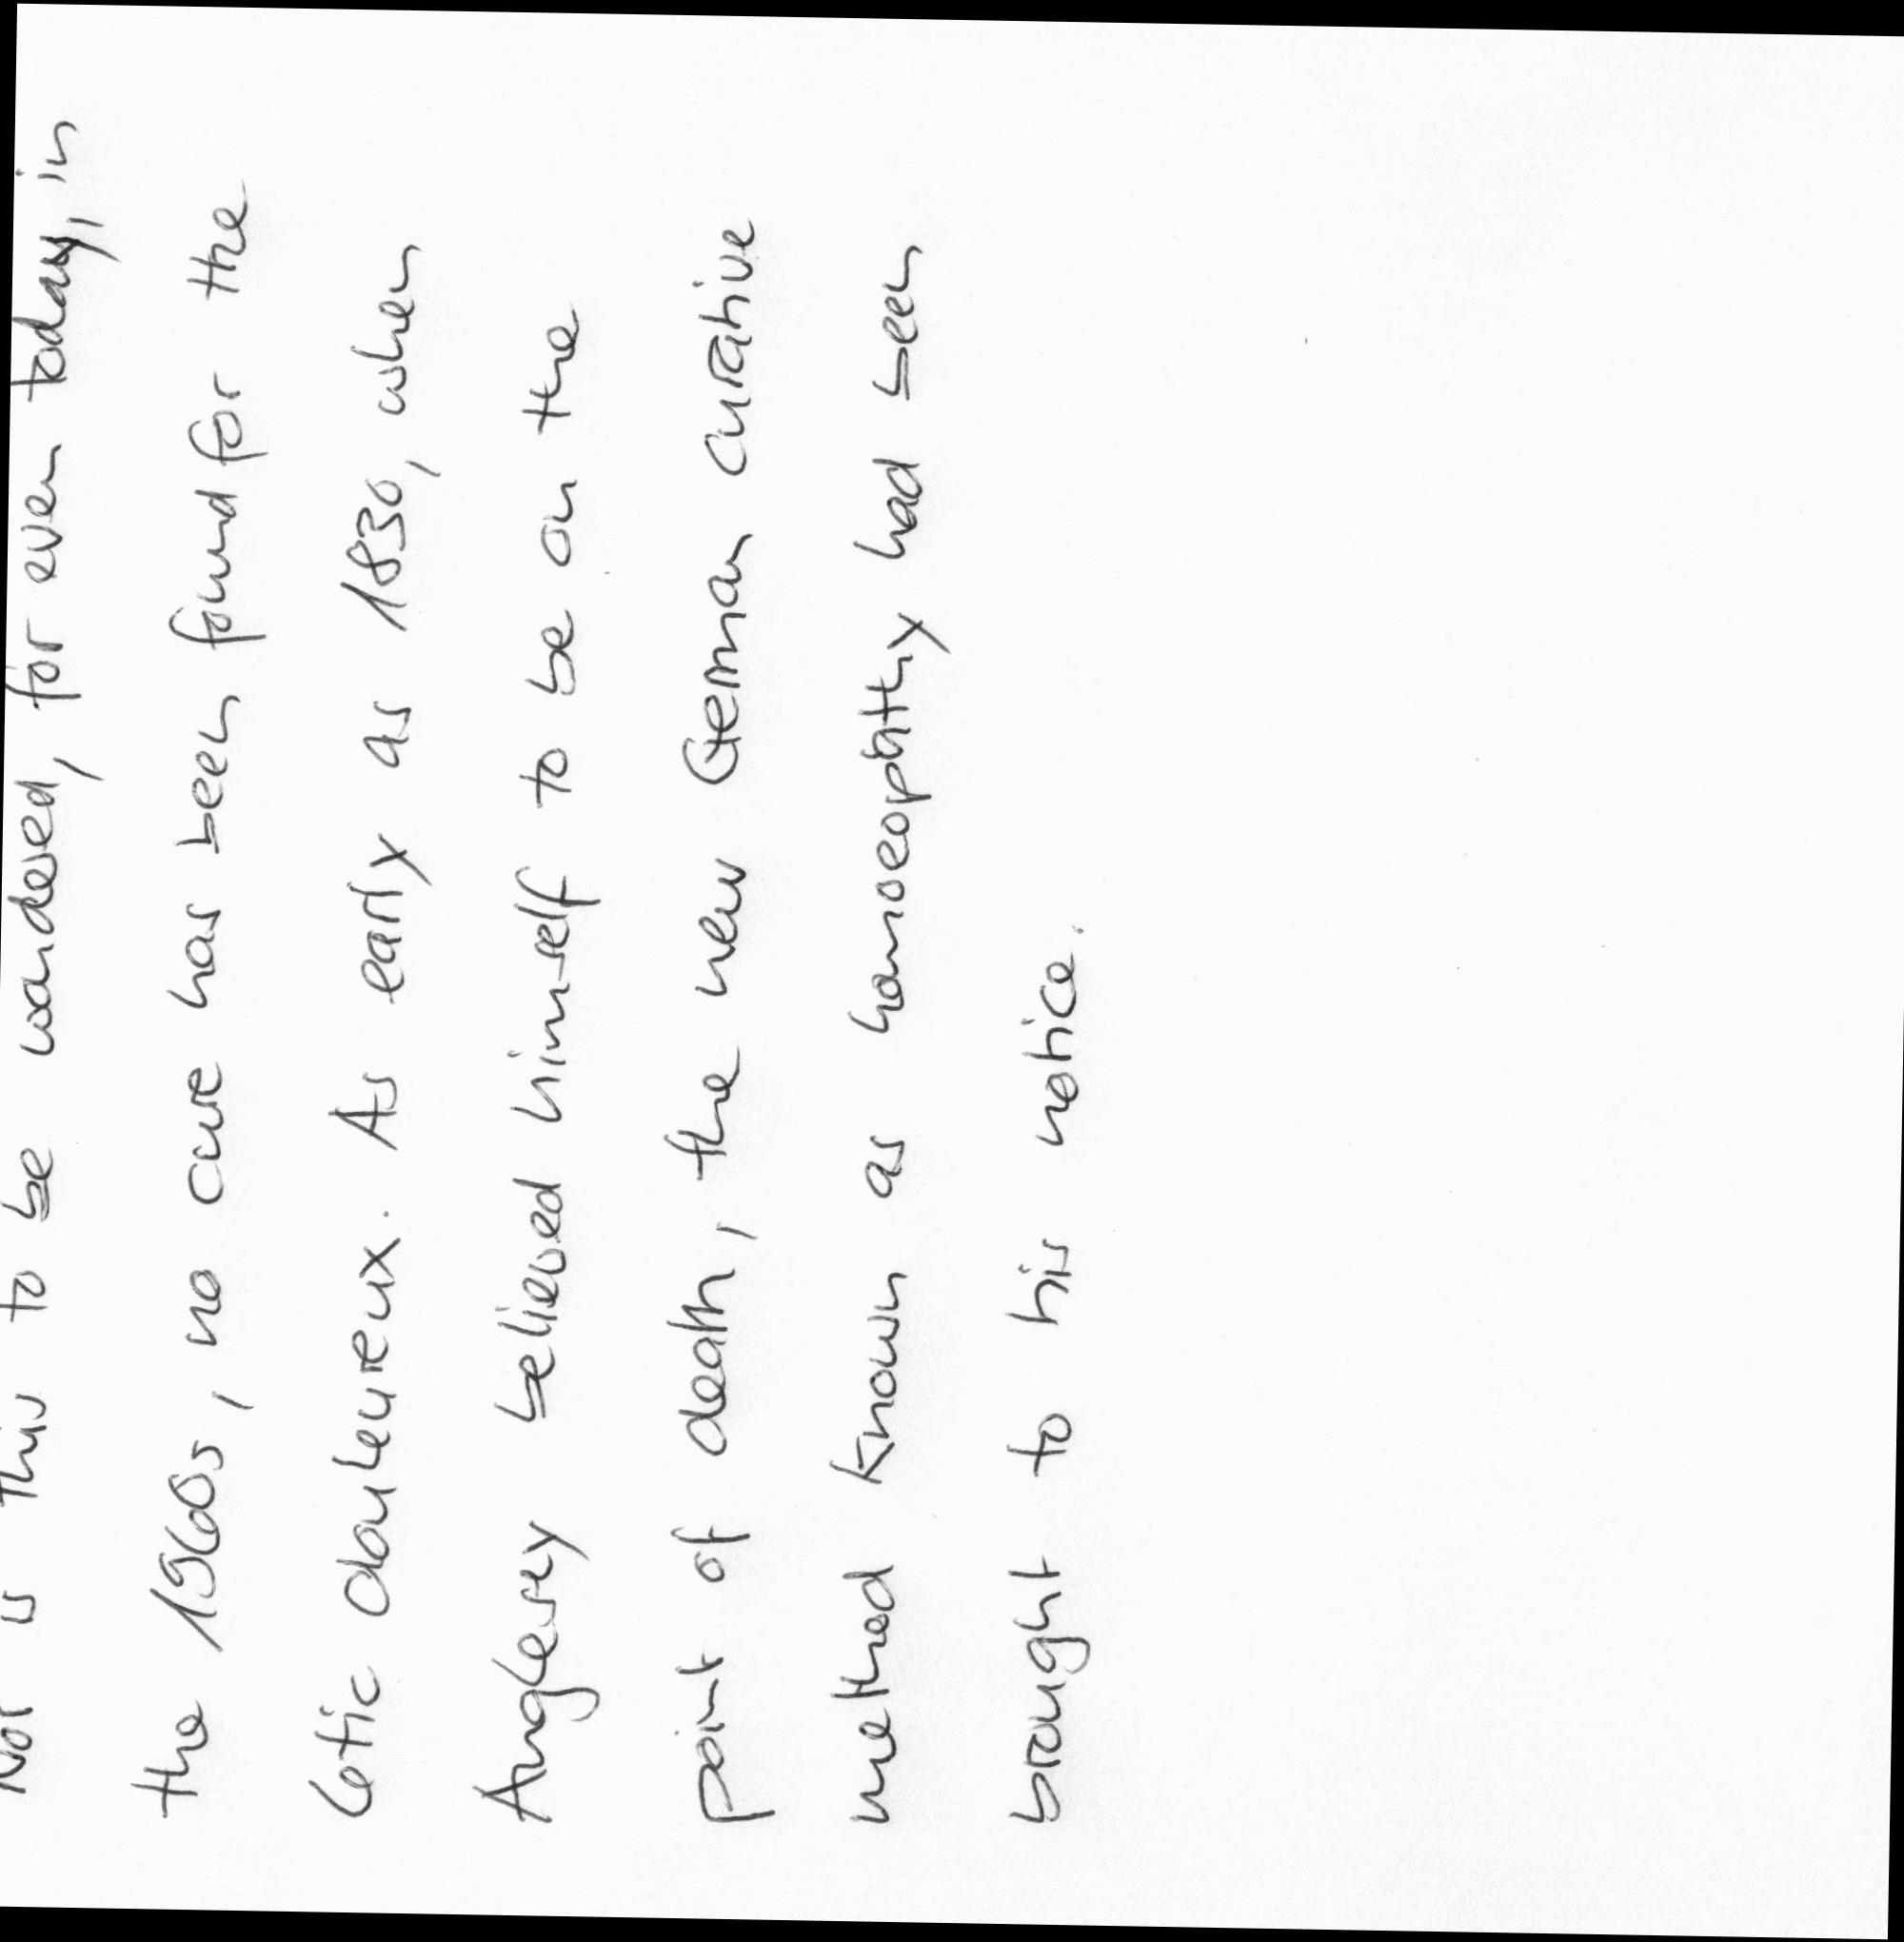 Nor is this to be wondered, for even today, in
the 1960s, no cure has been found for the
tic douloureux. As early as 1830, when
Anglesey believed himself to be on the
point of death, the new German curative
method known as homoeopathy had been
brought to his notice.